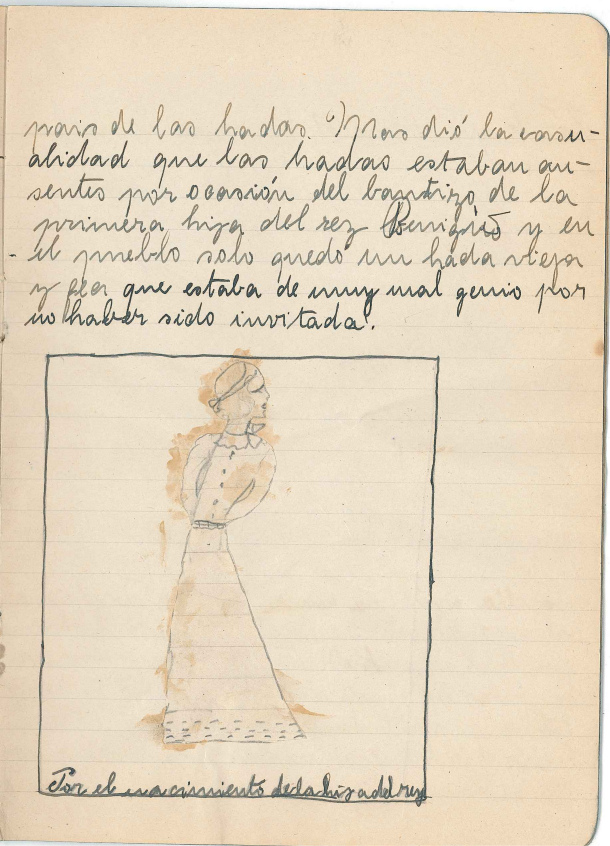 pais de las hadas. Mas dió la casu-
alidad que las hadas estaban au-
sentes por ocasión del bautizo de la
primera hija del rez Benigno y en
el pueblo solo quedó un hada vieja
y fea que estaba de muy mal genio por
no haber sido invitada.
Por el nacimiento de la hija del rey